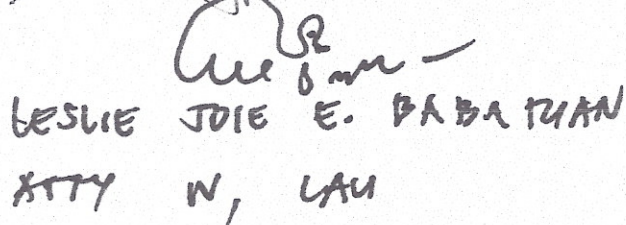 LESLIE JOIE E. BABARIAN
ATTY IV, LAU